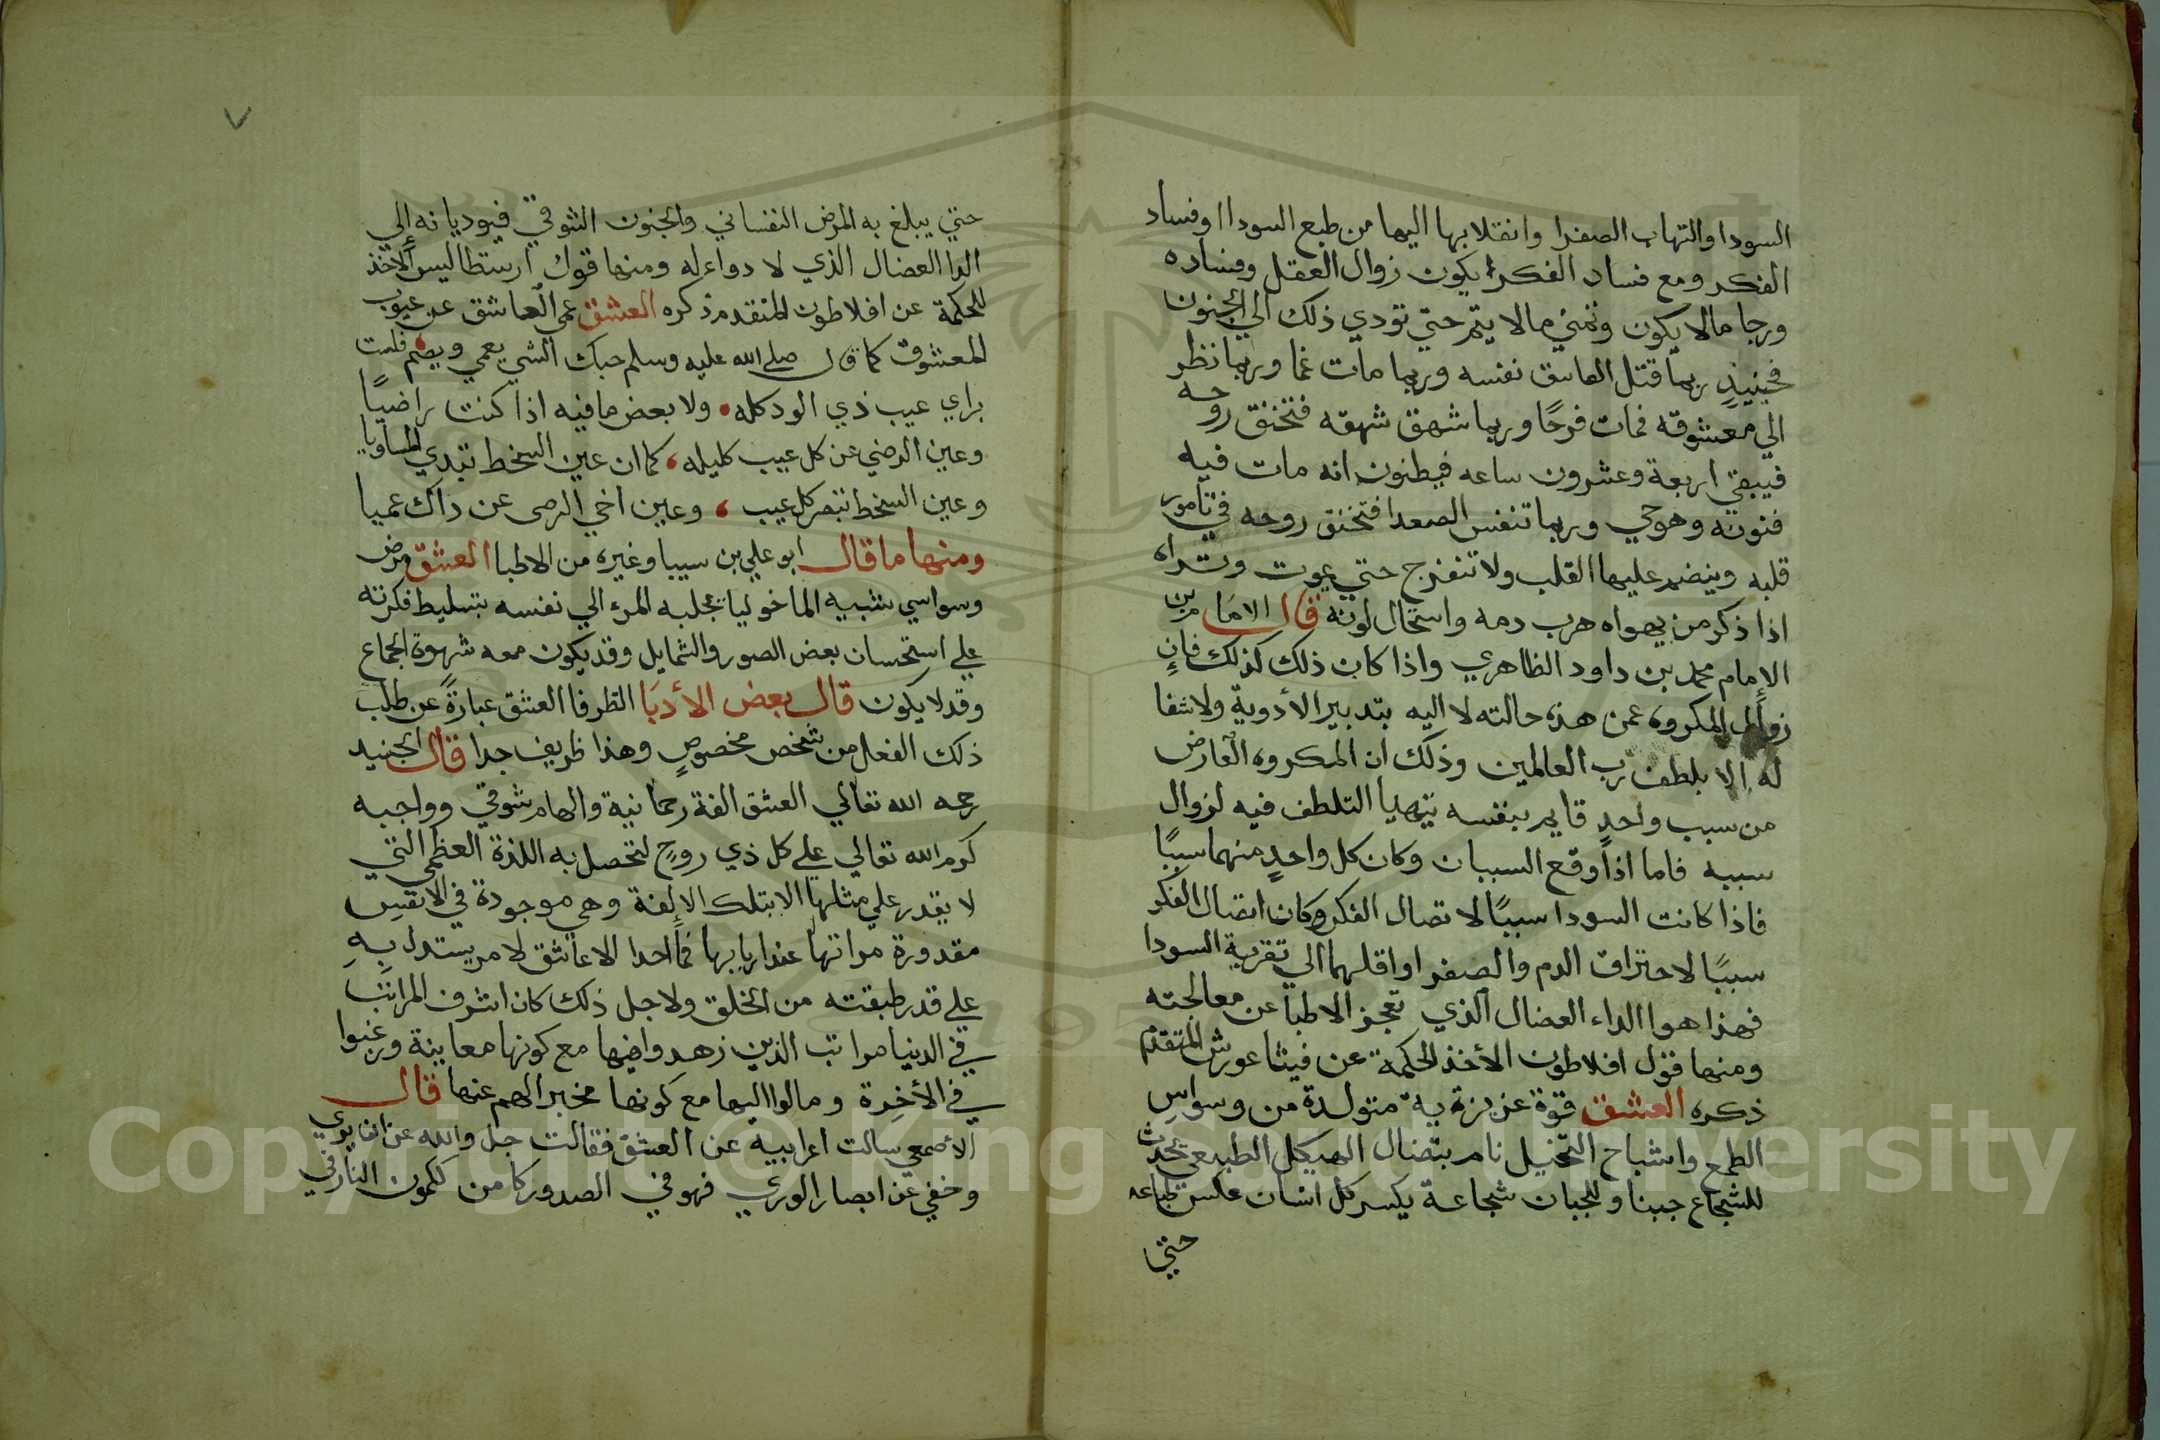 السودا والتهاب الصفرا وانقلابها اليها من طبع السودا وفساد
الفكر ومع فساد الفكر يكون زوال العقل وفساده
ورجا مالا يكون وتمني مالا يتم حتي تودي ذلك الي الجنون
فحينيذ ربما قتل العاشق نفسه وربما مات غما وربما نظر
الي معشوقه فمات فرحًا وربما شهق شهقه فتختنق روحه
فيبقي اربعة وعشرون ساعه فيظنون انه مات فيه
فنونه وهو حي وربما تنفس الصعدا فتختنق روحه في تامور
قلبه وينضم عليها القلب ولا تنفرج حتي يموت وتراه
اذا ذكر من يهواه هرب دمه واستحال لونه قال الامام بن
الإمام محمد بن داود الظاهري واذا كان ذلك كذلك فان
زوال المكروه عمن هذه حالته لا اليه بتدبير الأدوية ولا شفا
له إلا بلطف رب العالمين وذلك ان المكروه العارض
من سبب واحدٍ قايم بنفسه يتهيا التلطف فيه لزوال
سببه فاما اذا وقع السببان وكان كل واحدٍ منهما سببًا
فاذا كانت السودا سببًا لاتصال الفكر وكان اتصال الفكر
سببًا لاحتراق الدم والصفرا واقلبهما الي تقرية السودا
فهذا هوا الداء العضال الذي تعجز الاطبا عن معالجته
ومنها قول افلاطون الأخذ الحكمة عن فيثاعورش المتقدم
ذكره العشق قوة عزيزية متولدة من وسواسِ
الطمع واشباح التخيل نام بتضال الهيكل الطبيعي تحدث
للشجاع جبنا وللجبان شجاعة يكسر كل انسان عكس طباعه
حتي
٧
حتي يبلغ به المرض النفساني والجنون الشوقي فيوديانه إلي
الدا العضال الذي لا دواء له ومنها قول ارستطاليس الاخذ
للحكمة عن افلاطون المتقدم ذكره العشق عمي العاشق عن عيوب
المعشوق كما قال صلي الله عليه وسلم حبك الشي يعمي ويصم فلست
براي عيب ذي الود كله ولا بعض ما فيه اذا كنت راضيًا
وعين الرضي عن كل عيب كليله كما ان عين السخط تبدي المساويا
وعين السخط تبصر كل عيب وعين اخي الرضى عن ذاك عميا
ومنها ما قال ابو علي بن سيبا وغيره من الاطبا العشق مرض
وسواسي شبيه الماخوليا يجلبه المرء الي نفسه بتسليط فكرته
علي استحسان بعض الصور والشمايل وقد يكون معه شهوة الجماع
وقد لا يكون قال بعض الأدبَا الظرفا العشق عبارةً عن طلب
ذلك الفعل من شخص مخصوصٍ وهذا ظريف جدا قال الجنيد
رحمه الله تعالي العشق الفة رحمانية والهام شوقي وواجبه
كرم الله تعالي علي كل ذي روحٍ لتحصل به اللذة العظمي التي
لا يقدر علي مثلها الا بتلك الالفة وهي موجودة في الانفسِ
مقدورة مراتها عند اربابها فما احدا الا عاشق لامر يستدل بهِ
علي قدر طبقته من الخلق ولاجل ذلك كان اشرف المراتب
في الدنيا مراتب الذين زهدوا فيها مع كونها معاينة ورغبوا
في الأخِرة ومالوا اليها مع كونها مخبرا لهم عنها قال
الاصمعي سالت اعرابية عن العشق فقالت جل والله عن ان يري
وخفي عن ابصار الوري فهو في الصدور كامن ككمون النار في
Copyright © King Saud University